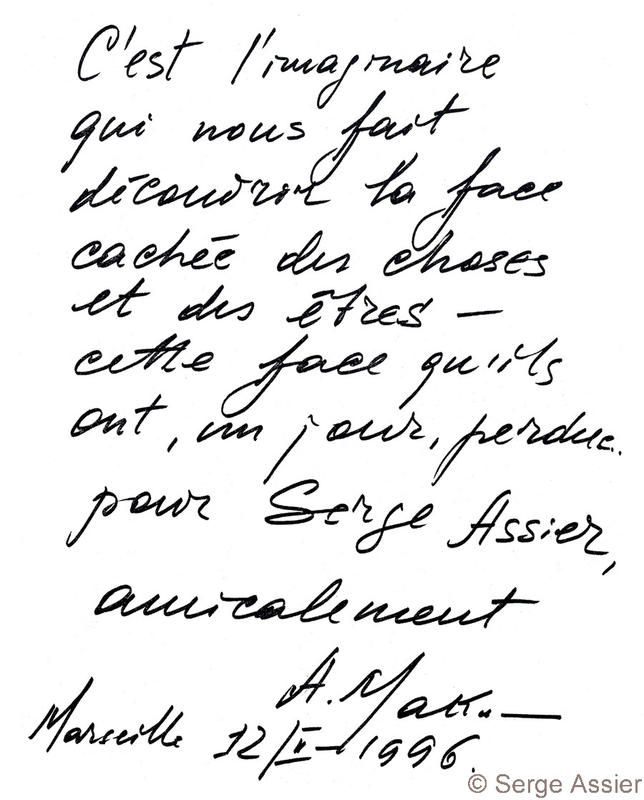 C'est l'imaginaire
qui nous fait
découvrir la face
cachée des choses
et des êtres –
cette face qu'ils
ont, un jour, perdue.
pour Serge Assier,
amicalement
A. Mak
Marseille 12/II – 1996.
© Serge Assier